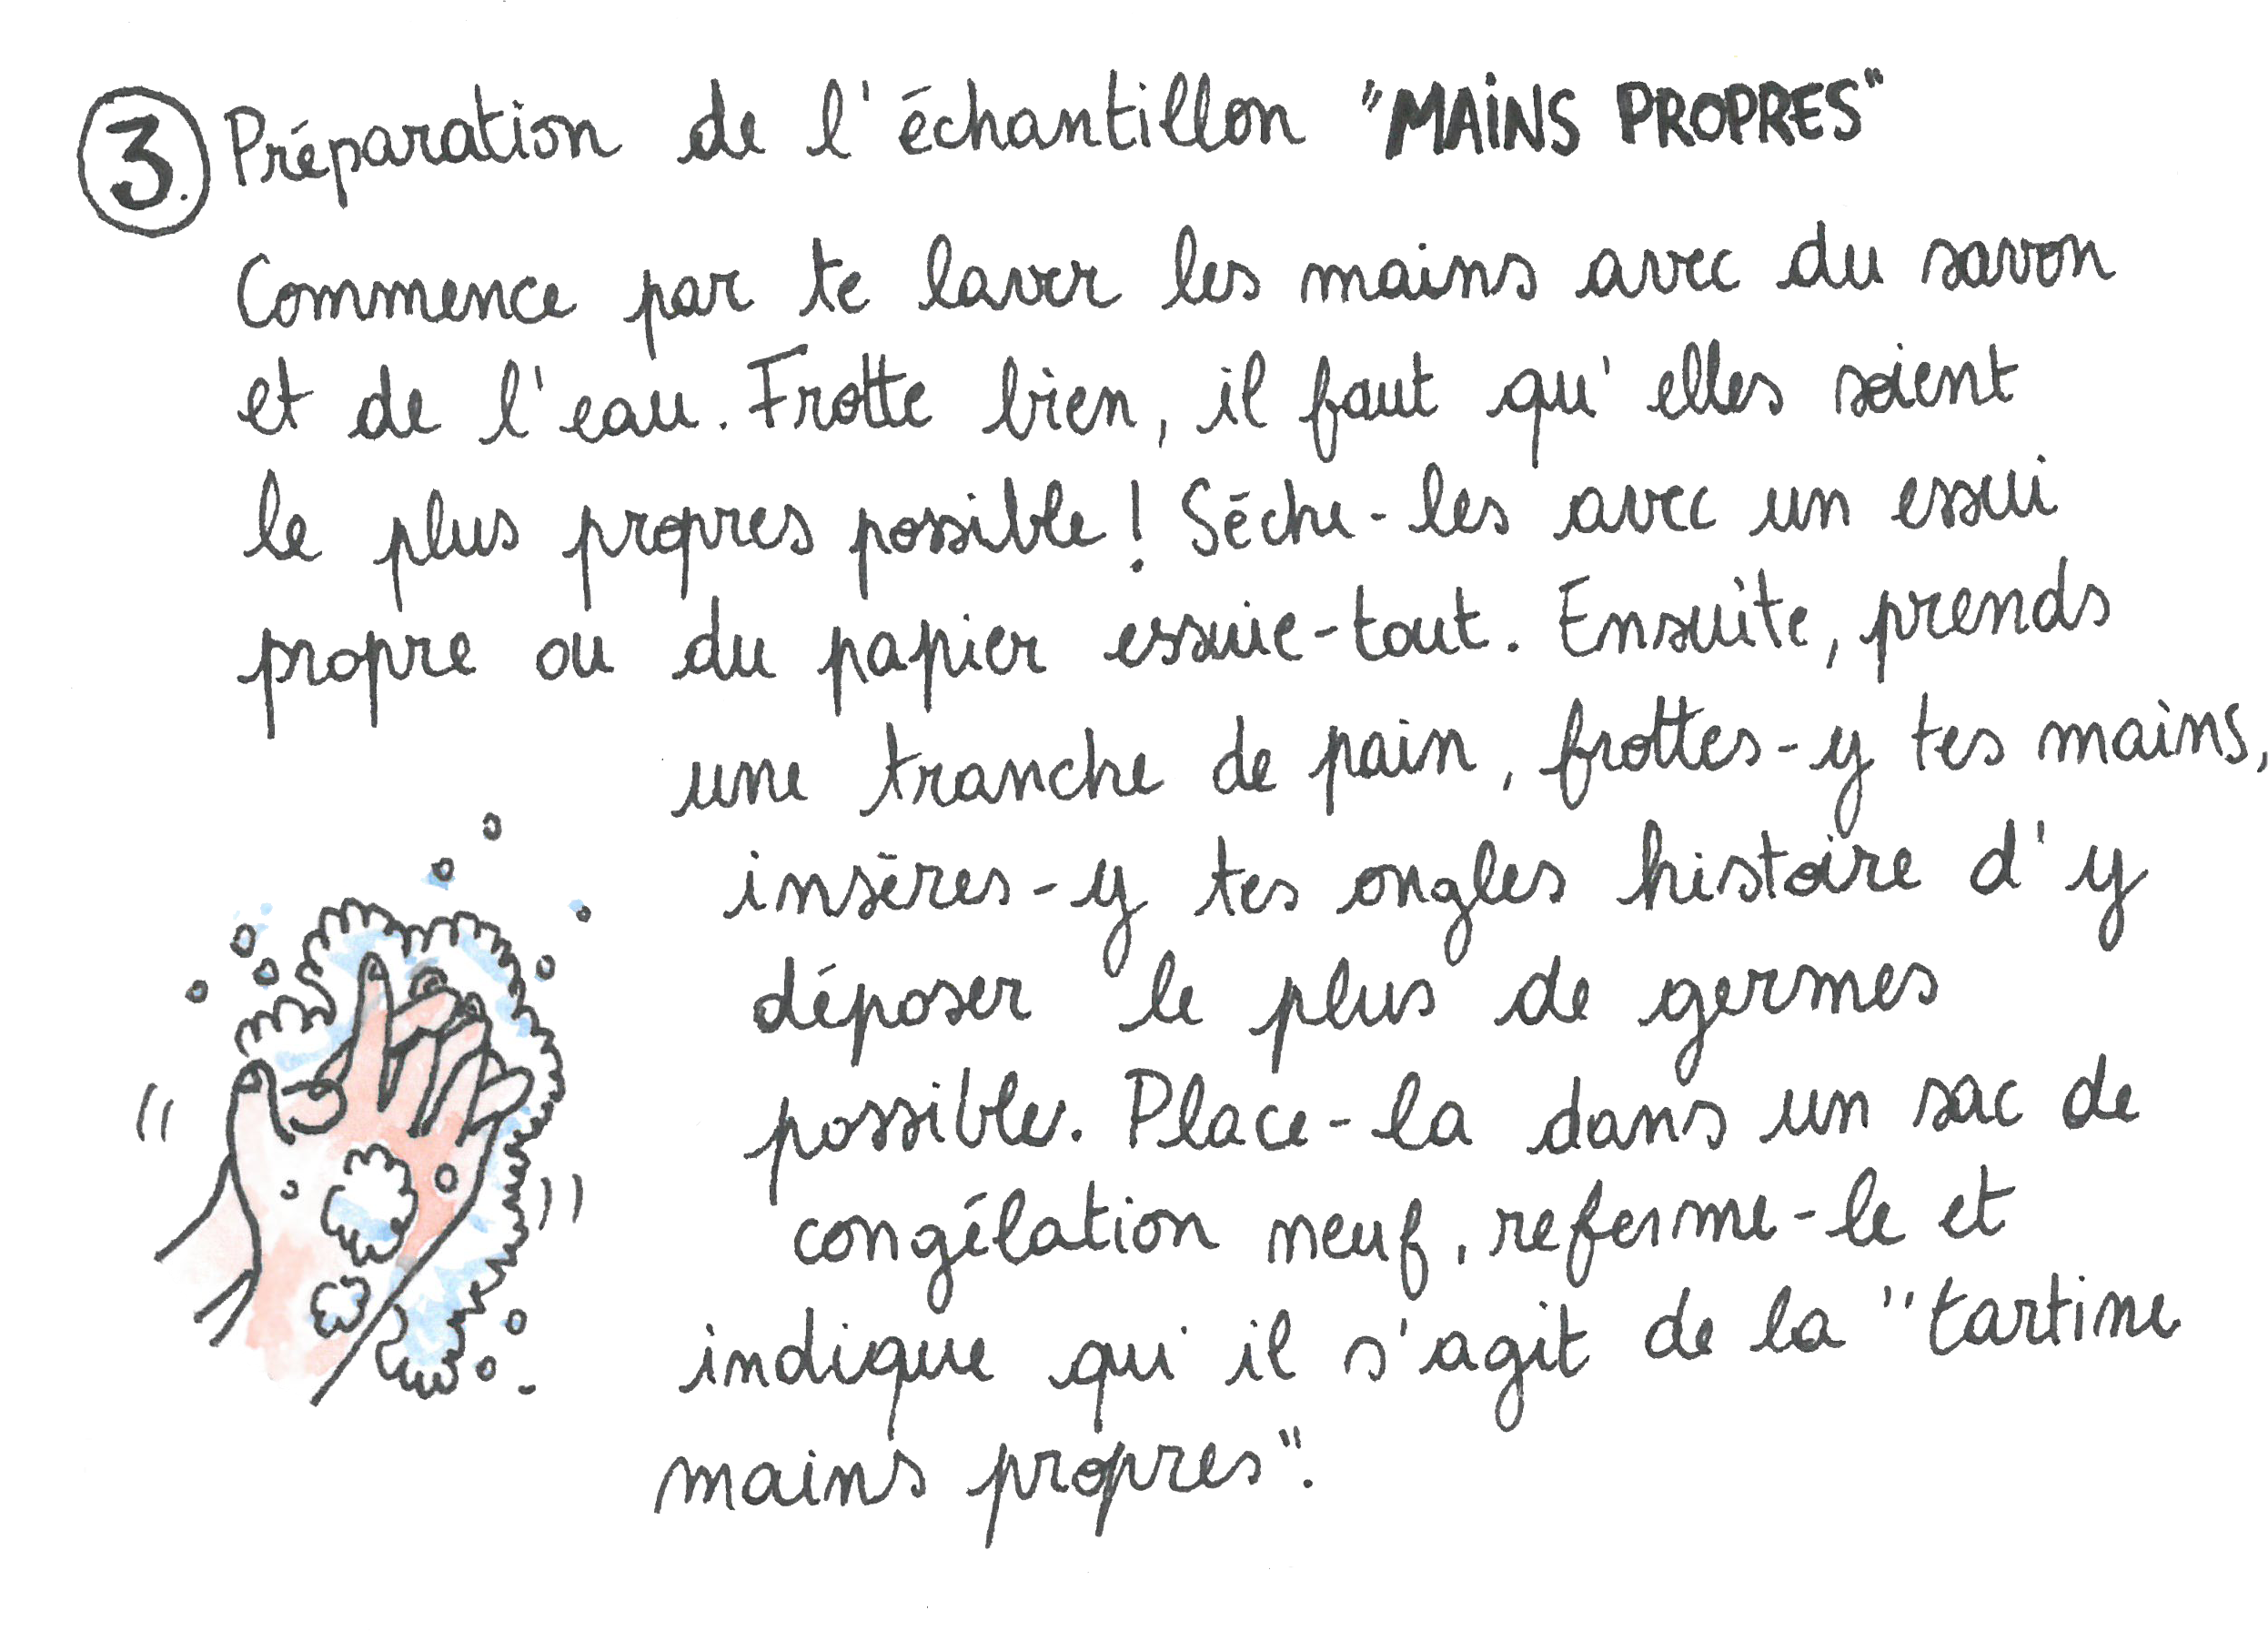 3. Préparation de l'échantillon "MAiNS PROPRES"
Commence par te laver les mains avec du savon
et de l'eau. Frotte bien, il faut qu'elles soient
le plus propres possible! Sèche-les avec un essui
propre ou du papier essuie-tout. Ensuite, prends
une tranche de pain, frottes-y tes mains,
insères-y tes ongles histoire d'y
déposer le plus de germes
possible. Place-la dans un sac de
congélation neuf, referme-le et
indique qu'il s'agit de la "tartine
mains propres".